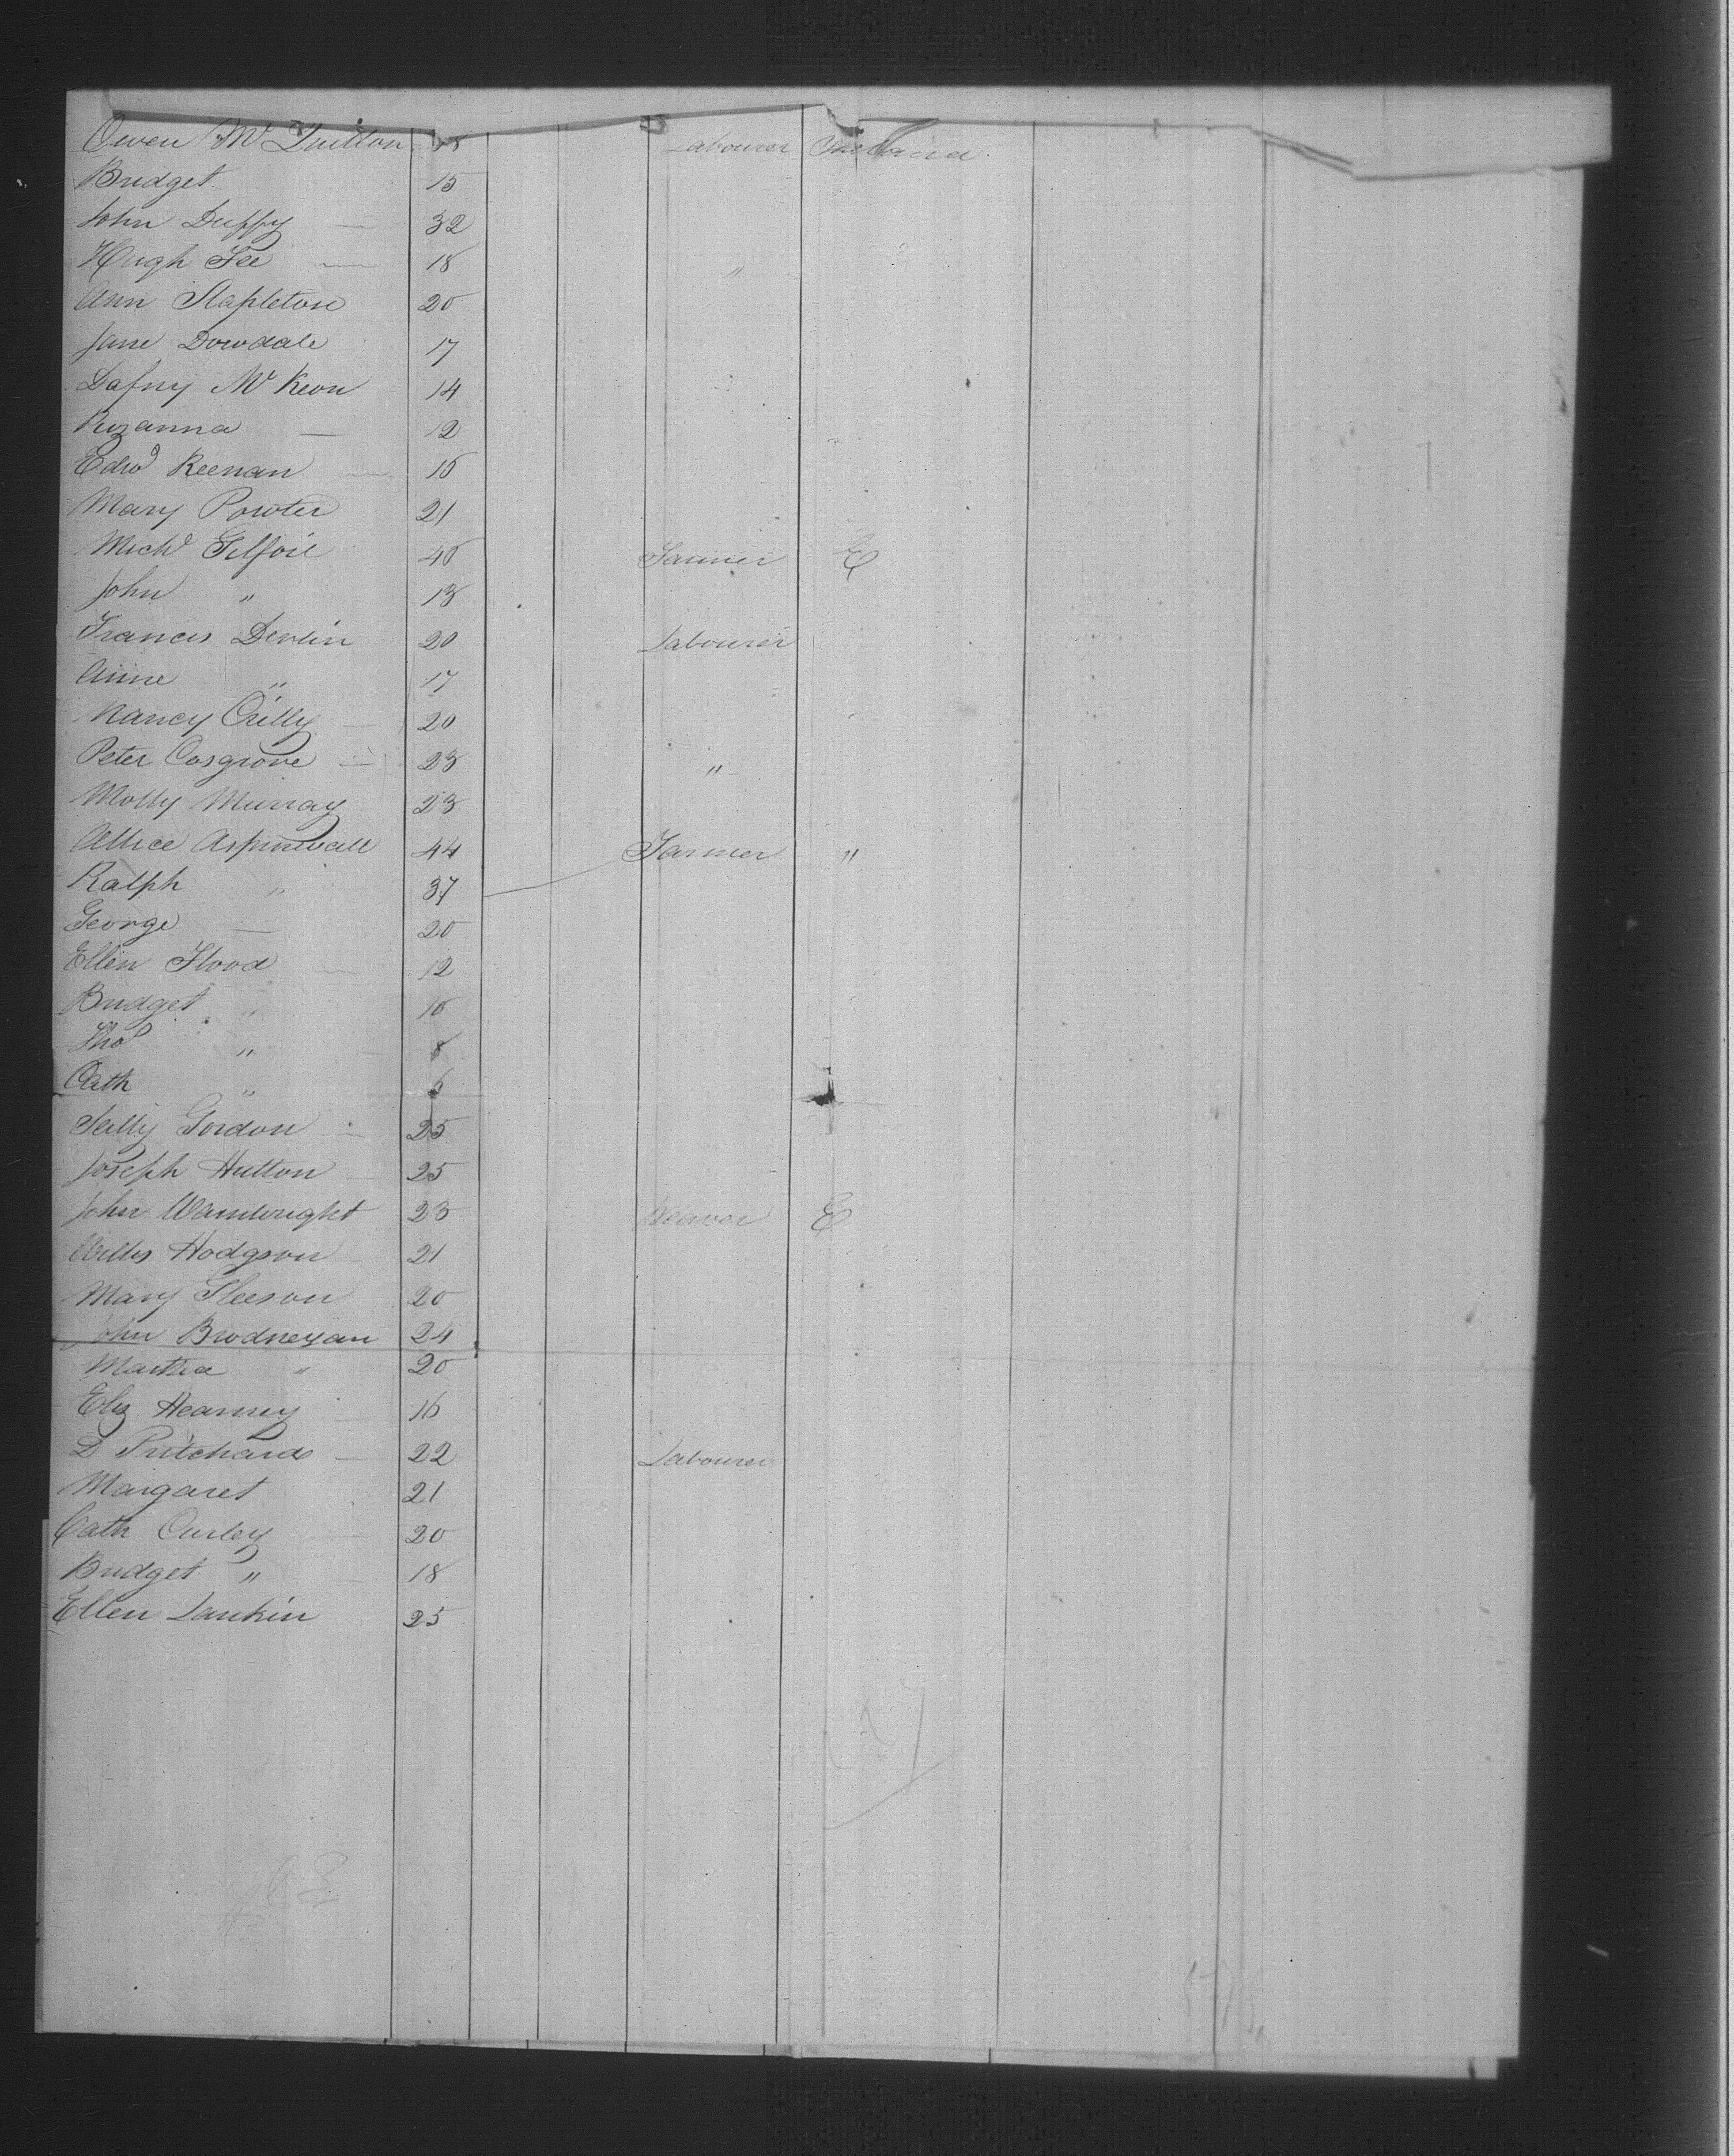 Owen Mc Quillon 18 Labourer Ireland
Bridget 15
John Duffy — 32
Hugh Fee — 18 "
Ann Stapleton 20
Jane Dowdale 17
Dafny Mc Keon 14
Rozanna — 12
Edwd Keenan — 15
Mary Powter 21
Michl Gilfoil 40 Farmer E
John " 13
Francis Devlin 20 Labourer
Anne " 17
Nancy Crilly — 20
Peter Cosgrove — 23 "
Molly Murray 23
Allice Aspinwall 44 Farmer "
Ralph " 37
George — 20
Ellen Flood — 12
Bridget " 10
Thos " 8
Cath " 6
Gordon — 25
Joseph Hutton — 25
John Wainwright 23 Weaver E
Willis Hodgson 21
Mary Gleeson 20
John Brodneyan 24
Martha " 20
Eliz Hearney — 16
D Pritchard — 22 Labourer
Margaret 21
Cath Curley — 20
Bridget " — 18
Ellen Lankin 25